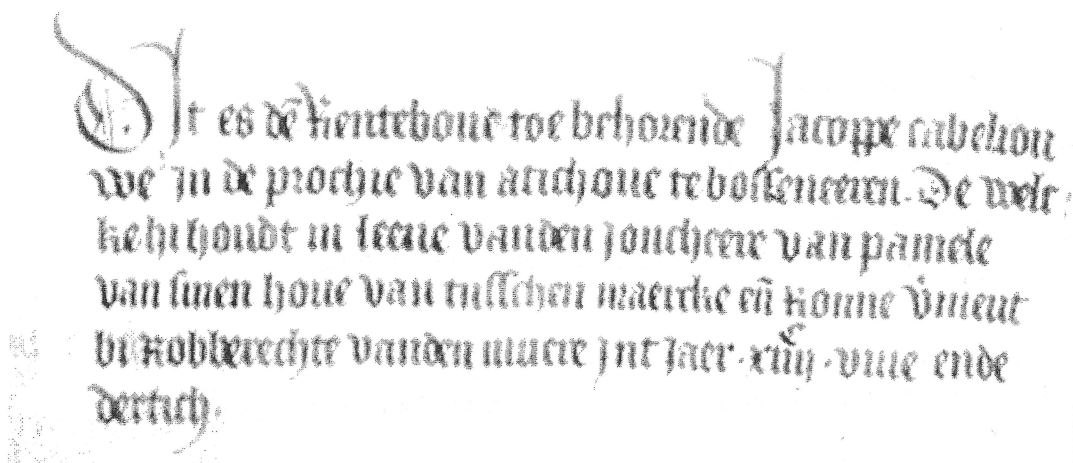 Dit es dē Renteboue toe behorende Jacoppe cabeliou
we in de prochie van atichoue te bosseneeren. De welc
ke hi houdt in leene vanden joncheere van pamele
van sinen houe van tusschen maercke en̄ Ronne v̓nieut
bi Robberechte vanden muere jnt Jaer .xiiijᶜ. viue ende
dertich.